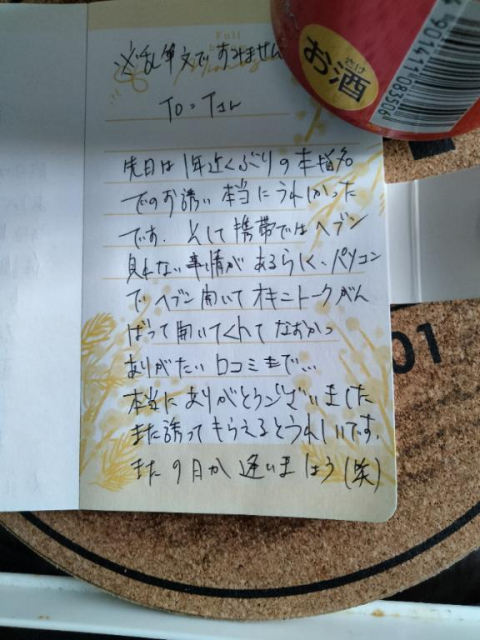 Full
※乱筆文ですみません
お酒
4901411083506
To:Tさん
先日は1年近くぶりの本指名
でのお誘い本当にうれしかった
です。そして携帯ではヘブン
見れない事情があるらしく、パソコン
でヘブン開いてオキニトークがん
ばって開いてくれてなおかつ
ありがたい口コミまで…
本当にありがとうございました
また誘ってもらえるとうれしいです。
また9日か逢いましょう(笑)
01